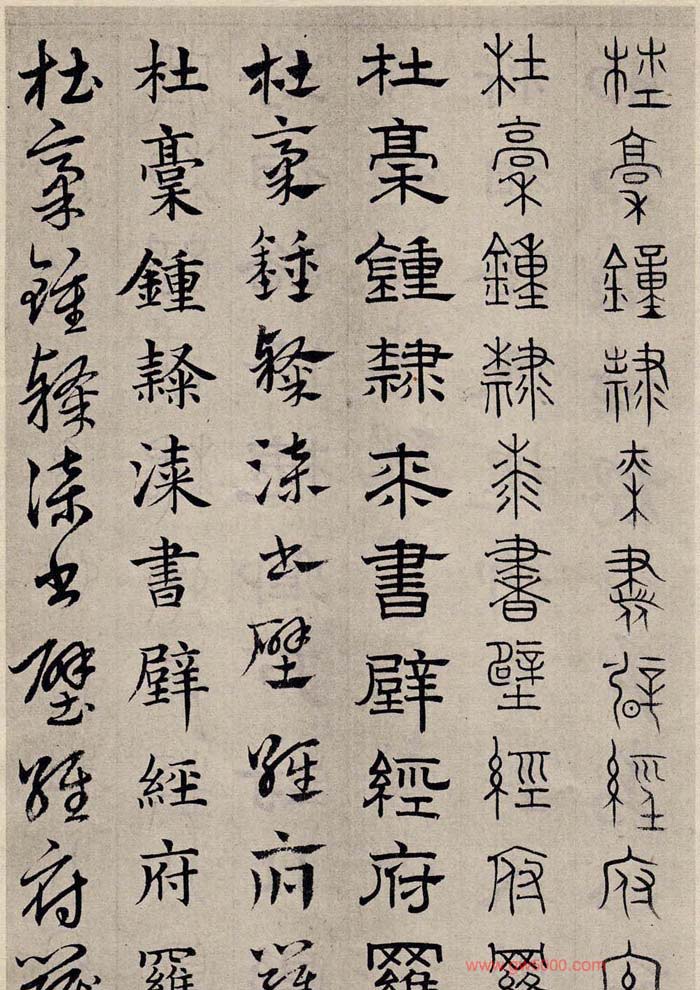 杜稾鐘隸桼書壁經府
杜稾鍾隸桼書壁經府羅
杜稾鍾隸桼書壁經府羅
杜稾鍾隸漆書壁經府羅
杜稾鍾隸漆書壁經府羅
杜稾鍾隸漆書壁經府羅